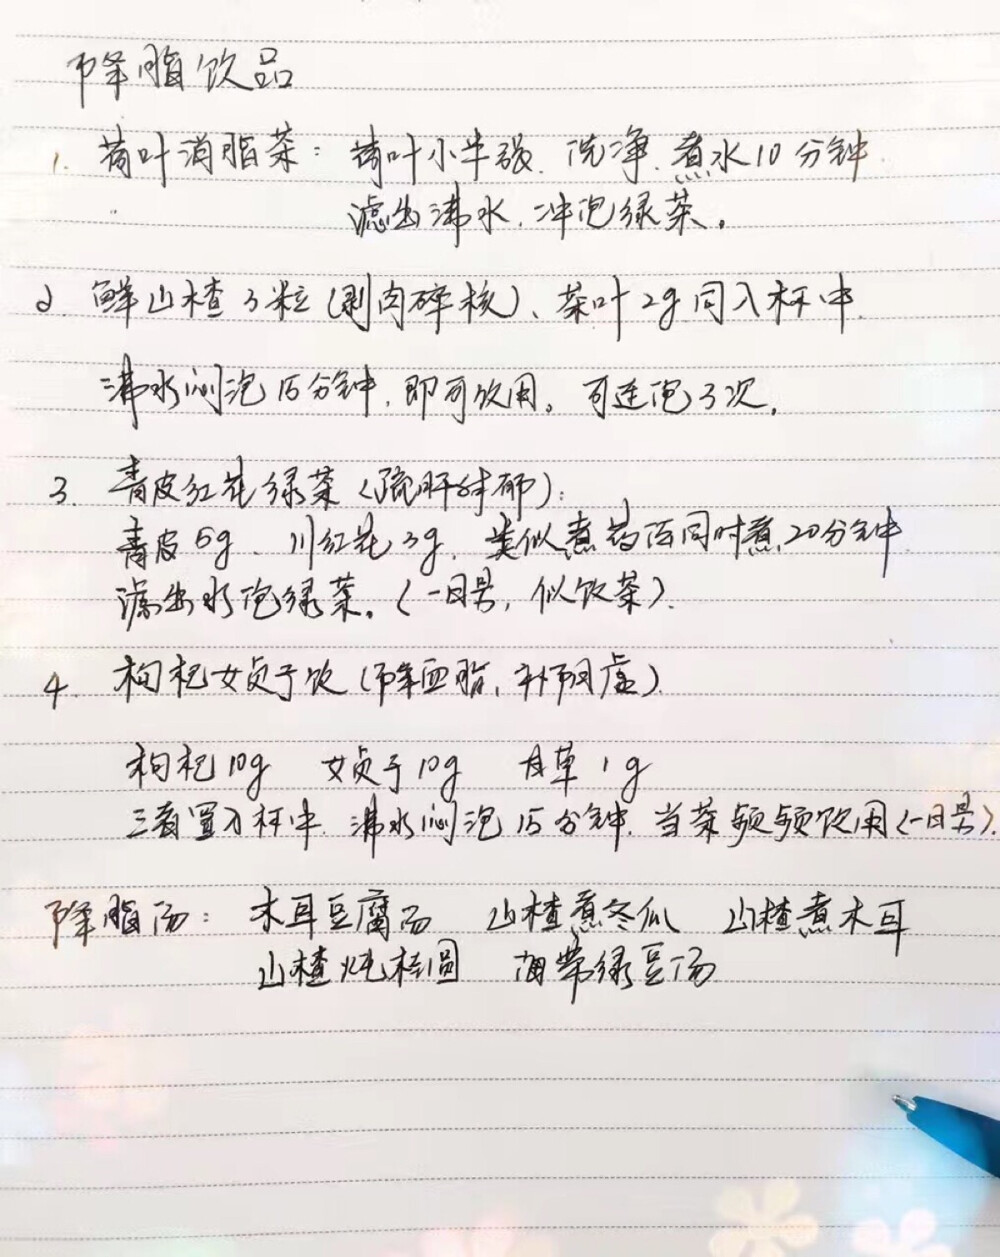 降脂饮品
1. 荷叶消脂茶：荷叶小半张.洗净.煮水10分钟.
滤出沸水.冲泡绿茶。
2. 鲜山楂3粒(剥肉碎核)、茶叶2g同入杯中.
沸水焖泡15分钟.即可饮用。可连泡3次.
3. 青皮红花绿茶(疏肝解郁):
青皮6g、川红花3g. 类似煮药 同时煮20分钟.
滤出水泡绿茶。(一日号，似饮茶).
4. 枸杞女贞子饮(降血脂,补阴虚).
枸杞10g 女贞子10g 甘草1g
三者置入杯中.沸水焖泡15分钟.当茶频频饮用(一日号).
降脂汤：木耳豆腐汤 山楂煮冬瓜 山楂煮木耳
山楂炖桂圆 海带绿豆汤